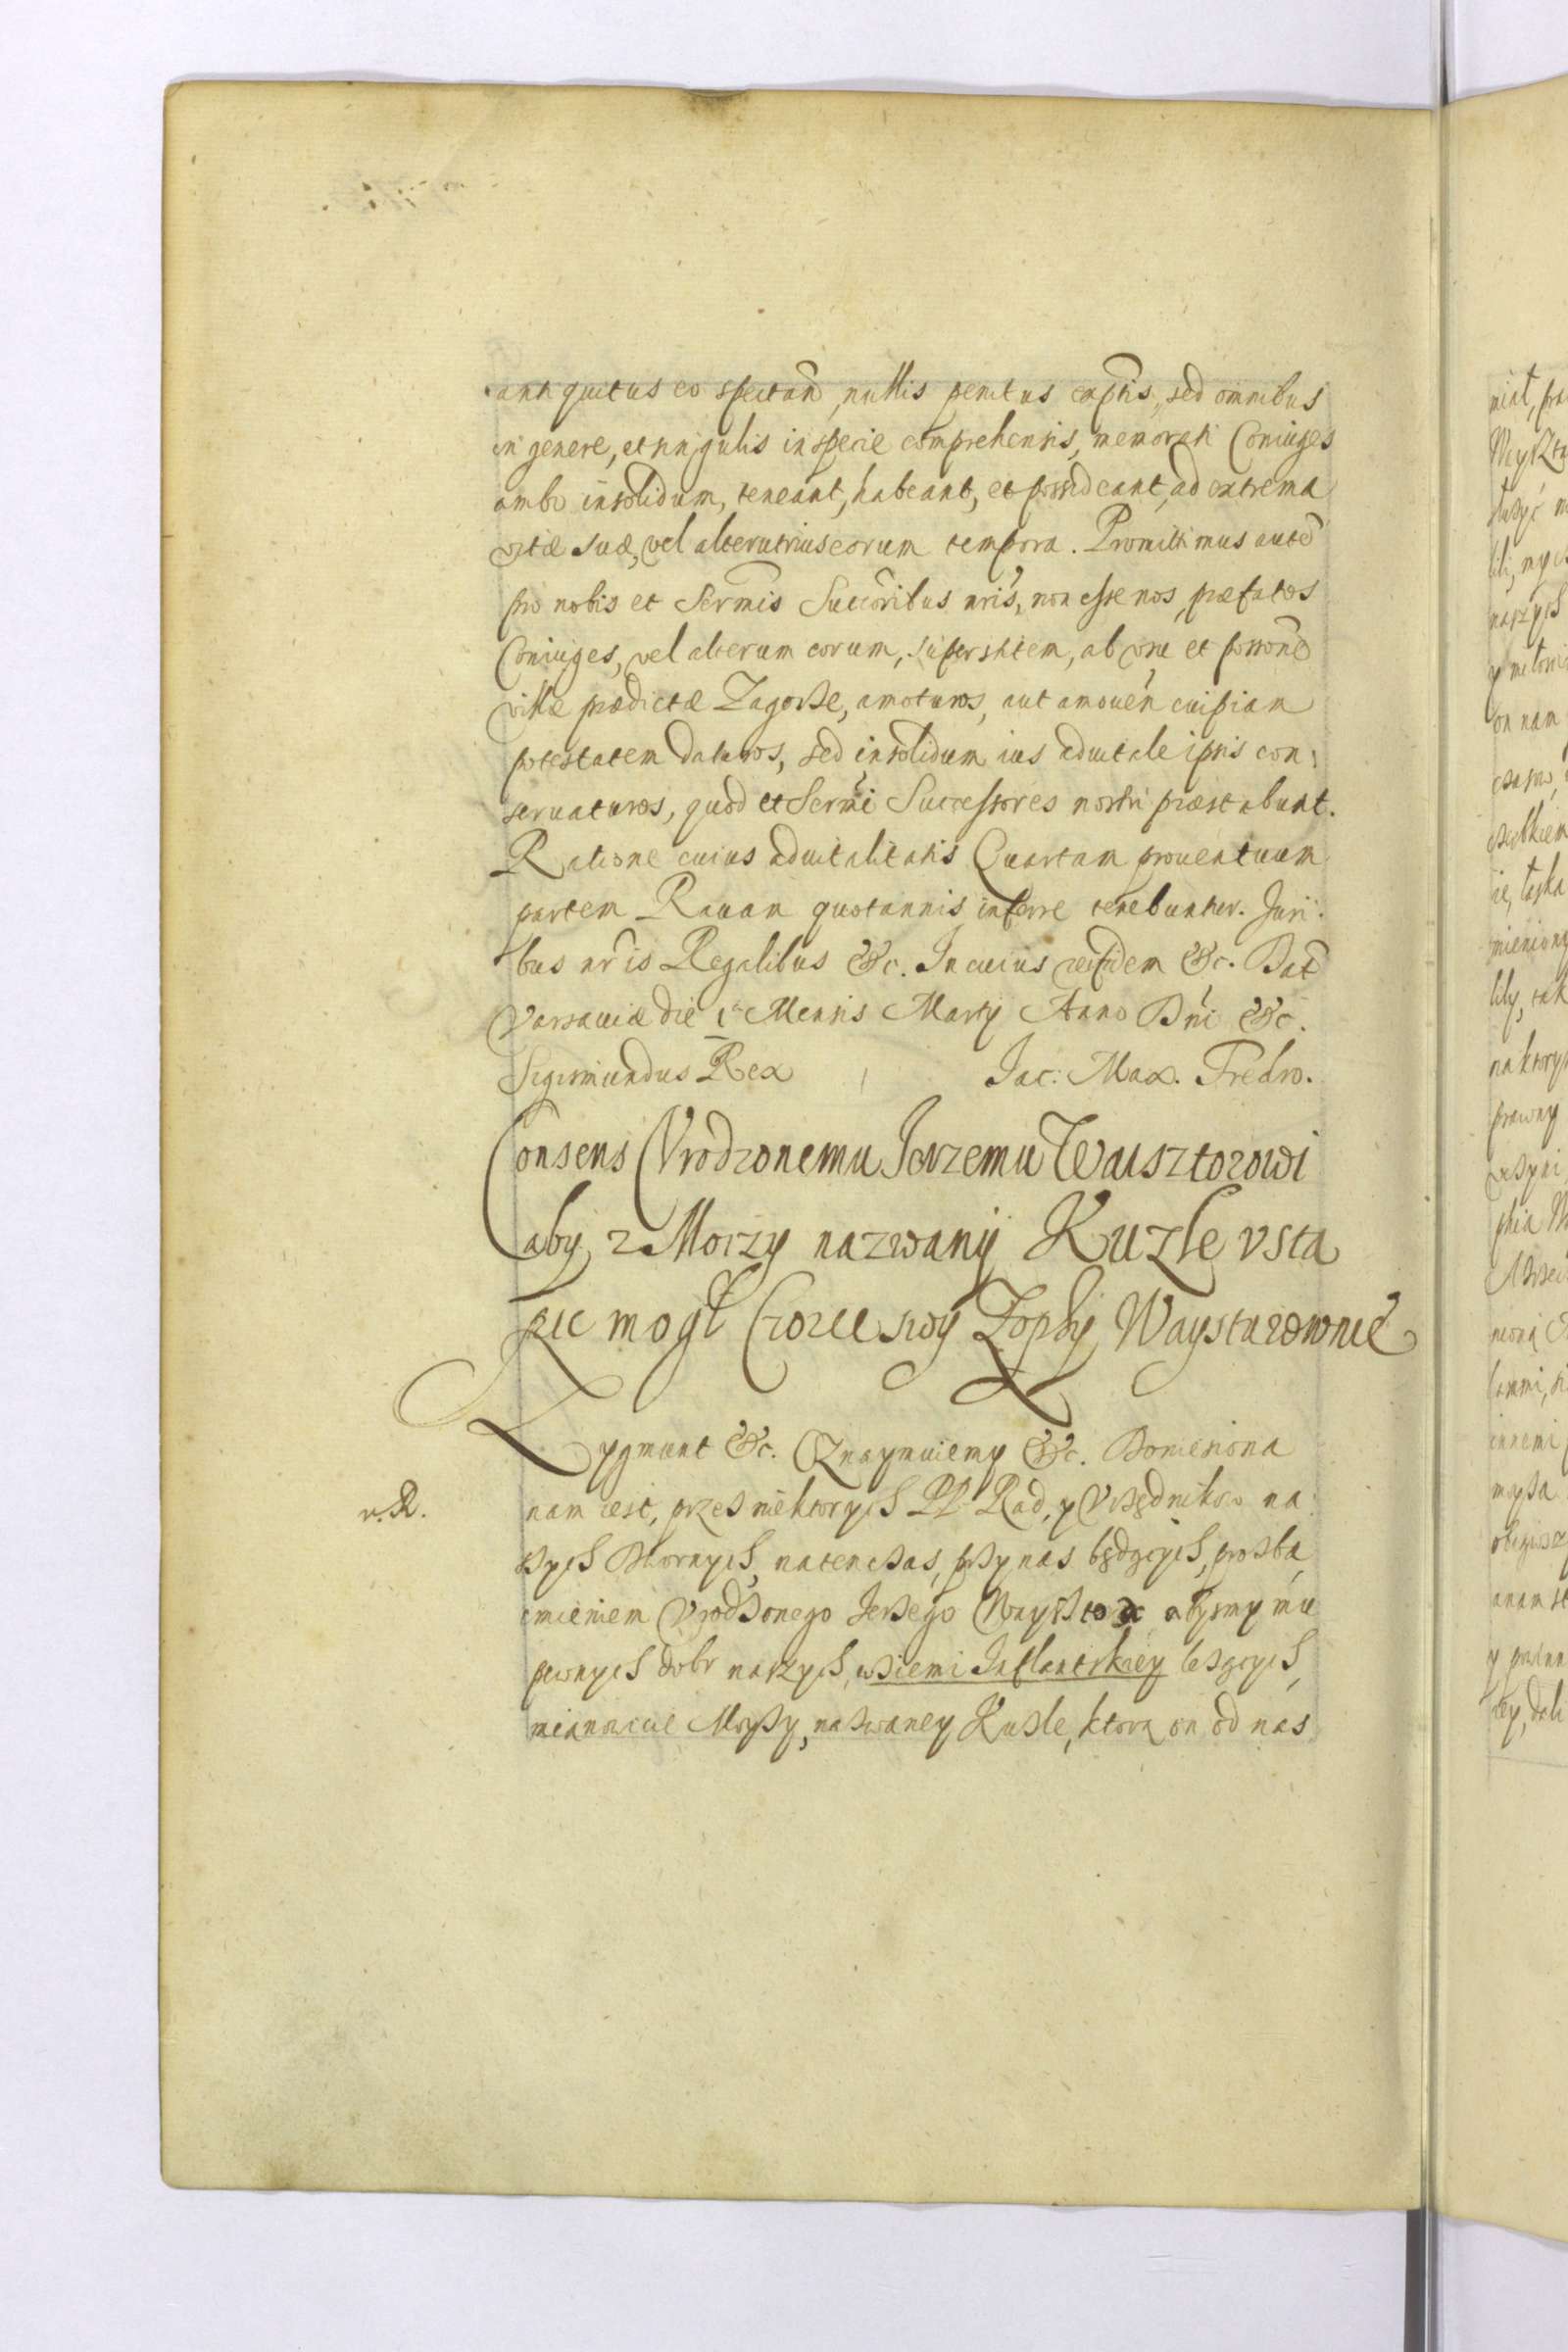 antiquitus eo spectan̄, nullis penitus excptis, sed omnibus
in genere, et singulis in specie comprehensis, memorati Coniuges
ambo insolidum, teneant, habeant, et possideant, ad extrema
vitæ suæ, vel alterutrius eorum tempora. Promittimus autē
pro nobis et Serm̄is Succōribus nr̄is, non esse nos, præfatos
Coniuges, vel alterum eorum, superstitem, ab usu et possone
villæ prædictæ Zagorze, amoturos, aut amouen̄ cuipiam
potestatem daturos, sed insolidum ius aduitale ipsis con:
seruaturos, quod et Serm̄i Successores nostri præstabunt.
Ratione cuius aduitalitatis Quartam prouentuum
partem Rauam quotannis inferre tenebuntur. Juri:
bus nr̄is Regalibus &c. In cuius rei fidem &c. Dat
Varsauiæ die 1ª Mensis Martij Anno Dn̄i &c.
Sigismundus Rex Jac: Max. Fredro.
Consens Vrodzonemu Jerzemu Waisztorowi
aby z Moizy nazwanÿ Kuzle vsta
pic mogł Corce swÿ Zophÿ Waysturownie
Zygmunt &c. Oznaymuiemy &c. Doniesiona
v. R.
nam iest, przez niektorych PP. Rad, y Vrzędnikow na
szych Dwornych, natenczas, przy nas będących, prozba,
imieniem Vrodzonego Jerzego Waysztora abysmy mu
pewnych dobr naszych, w ziemi Inflantskiey lezących,
mianowicie Moyzy, nazwaney Kuzle, ktorą on od nas